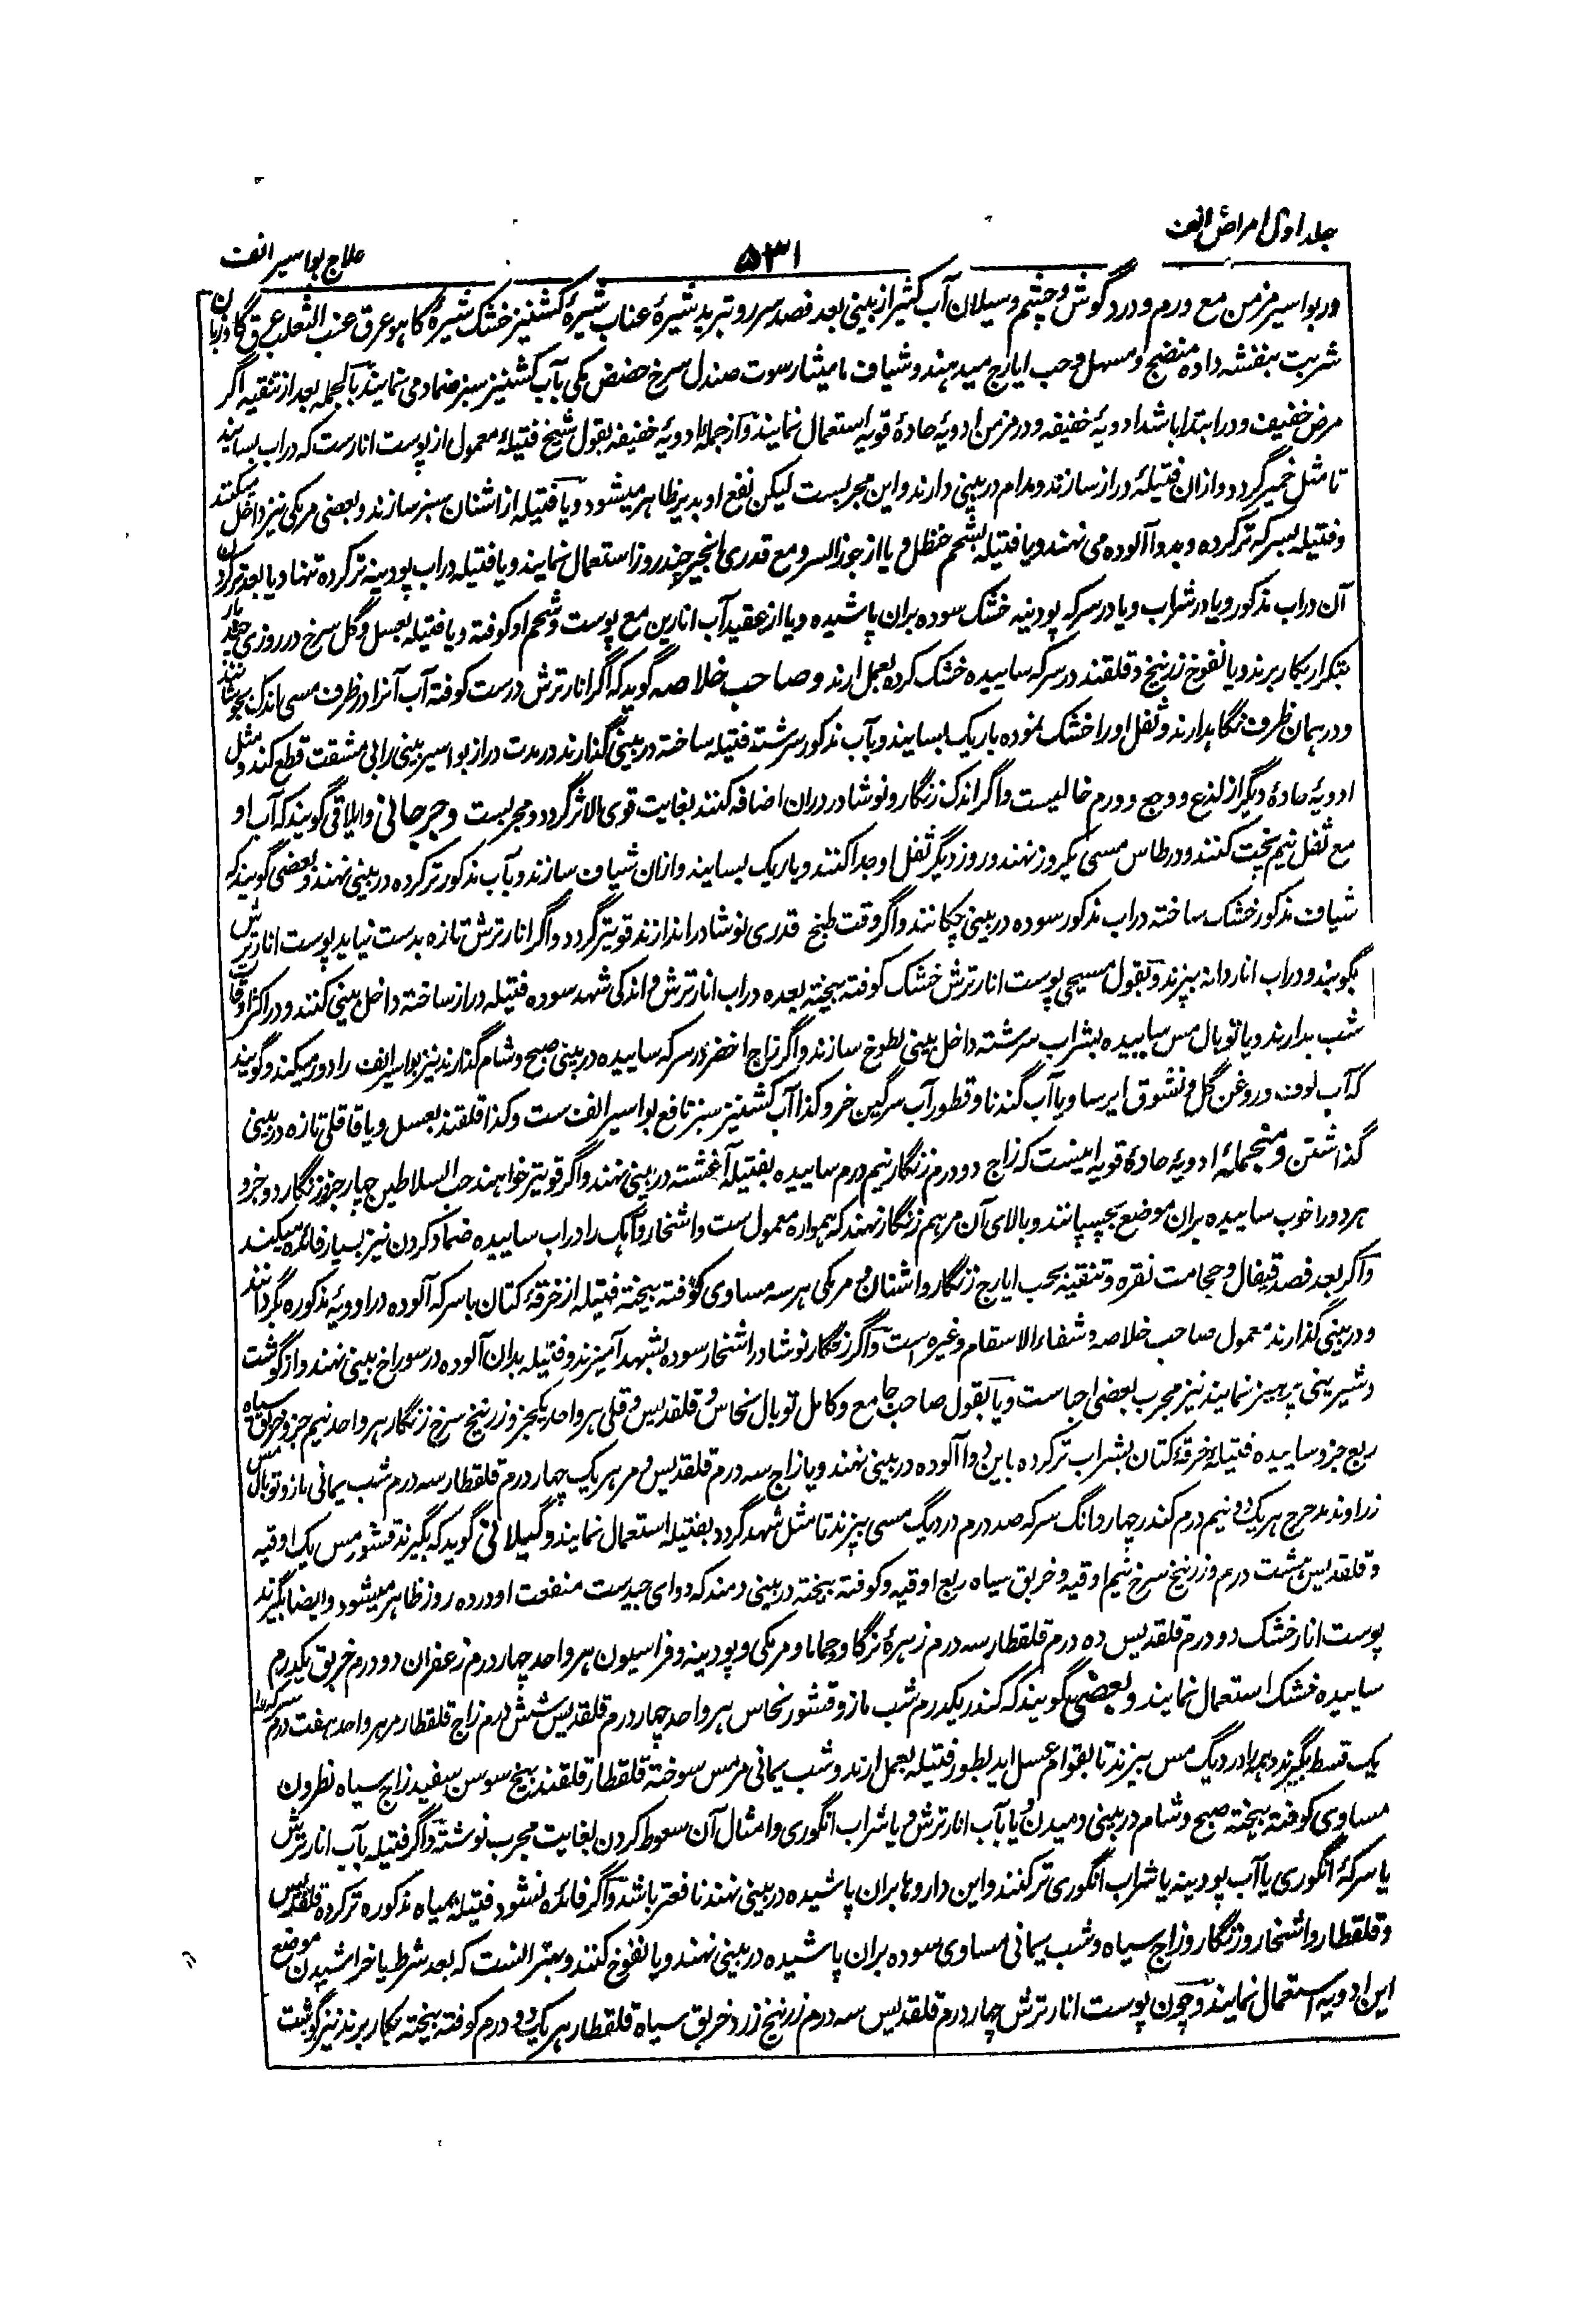 جلد اول امراض انف
۵۳۱
علاج بواسیر انف
در بواسیر مزمن مع ورم و درد گوش و چشم و سیلان آب کثیر از بینی بعد فصد سررو تبرید شیرهٔ عناب شیرهٔ کشنیز خشک شیرهٔ کاهو عرق عنب الثعلب عرق گاوزبان
شربت بنفشه داده منضج و مسهل و حب ایارج میدهند و شیاف مامیثا رسوت صندل سرخ حضض مکی بآب کشنیز سبز ضماد می نمایند بالجمله بعد از تنقیه اگر
مرض خفیف و در ابتدا باشد ادویهٔ خفیفه و در مزمن ادویهٔ حادهٔ قویه استعمال نمایند و از جملهٔ ادویهٔ خفیفه بقول شیخ فتیلهٔ معمول از پوست انارست که در آب بسایند
تا مثل خمیر گردد و ازان فتیلهٔ دراز سازند و مدام در بینی دارند و این مجربست لیکن نفع او بدیر ظاهر میشود و یا فتیله از اشنان سبز سازند و بعضی مرمکی نیز داخل میکنند
و فتیله بسرکه تر کرده و بدوا آلوده می نهند و یا فتیله بشحم حنظل و یا از جوز السرو مع قدری انجیر چند روز استعمال نمایند و یا فتیله در آب پودینه تر کرده تنها و یا بعد تر کردن
آن در آب مذکور و یا در شراب و یا در سرکه پودینه خشک سوده بران پاشیده و یا از عقید آب انارین مع پوست و شحم او کوفته و یا فتیله بعسل و گل سرخ در روزی چند بار
بتکرار بکار برند و یا نفوخ زرنیخ و قلقند در سرکه ساییده خشک کرده بعمل ارند و صاحب خلاصه گوید که اگر انار ترش درست کوفته آب آنرا در ظرف مسی اندک بجوشانند
و در همان ظرف نگاهدارند و ثفل او را خشک نموده باریک بسایند و بآب مذکور سرشته فتیله ساخته در بینی گذارند در مدت دراز بواسیر بینی را بی مشقت قطع کند و مثل
ادویهٔ حادهٔ دیگر از لذع و وجع و ورم خالیست و اگر اندک زنگار و نوشادر دران اضافه کنند بغایت قوی الاثر گردد و مجربست و جرجانی و ایلاقی گویند که آب او
مع ثفل نیم پخت کنند و در طاس مسی یکروز نهند و روز دیگر ثفل او جدا کنند و باریک بسایند و ازان شیاف سازند و بآب مذکور تر کرده در بینی نهند و بعضی گویند که
شیاف مذکور خشک ساخته در آب مذکور سوده در بینی چکانند و اگر وقت طبخ قدری نوشادر اندازند قویتر گردد و اگر انار ترش تازه بدست نیاید پوست انار ترش
بکوبند و در آب اناردانه بپزند و بقول مسیحی پوست انار ترش خشک کوفته بیخته بعده در آب انار ترش و اندکی شهد سوده فتیله دراز ساخته داخل بینی کنند و در اکثر اوقات
شب بدارند و یا توبال مس ساییده بشراب سرشته داخل بینی لطوخ سازند و اگر زاج اخضر در سرکه ساییده در بینی صبح و شام گذارند نیز بواسیر انف را دور میکند و گویند
که آب لوف و روغن گل و نشوق ایرسا و یا آب گندنا و قطور آب سرگین خر و کذا آب کشنیز سبز نافع بواسیر انف ست و کذا قلقند بعسل و یا قاقلی تازه در بینی
گذاشتن و منجملهٔ ادویهٔ حادهٔ قویه اینست که زاج دو درم زنگار نیم درم ساییده بفتیله آغشته در بینی نهند و اگر قویتر خواهند حب السلاطین چهار جزو زنگار دو جزو
هر دو را خوب ساییده بران موضع بچسپانند و بالای آن مرهم زنگار نهند که همواره معمول ست و اشخار و آهک را در آب ساییده ضماد کردن نیز بسیار فائده میکند
و اگر بعد فصد قیفال و حجامت نقره و تنقیه بحب ایارج زنگار و اشنان و مرمکی هر سه مساوی کوفته بیخته فتیله از خرقهٔ کتان با سرکه آلوده در ادویهٔ مذکوره بگردانند
و در بینی گذارند معمول صاحب خلاصه و شفاء الاسقام و غیره است و اگر زنگار نوشادر اشخار سوده بشهد آمیزند و فتیله بدان آلوده در سوراخ بینی نهند و از گوشت
و شیرینی پرهیز نمایند نیز مجرب بعضی احباست و یا بقول صاحب جامع و کامل توبال نحاس و قلقدیس و قلی هر واحد یکجزو زرنیخ سرخ زنگار هر واحد نیم جزو خربق سیاه
ربع جزو ساییده فتیلهٔ خرقهٔ کتان بشراب تر کرده باین دوا آلوده در بینی نهند و یا زاج سه درم قلقدیس و مر هر یک چهار درم قلقطار سه درم شب یمانی مازو توبال مس
زراوند مدحرج هر یک دو نیم درم کندر چهار دانگ سرکه صد درم در دیگ مسی بپزند تا مثل شهد گردد بفتیله استعمال نمایند و گیلانی گوید که بگیرند قشور مس یک اوقیه
و قلقدیس هشت درم و زرنیخ سرخ نیم اوقیه و خربق سیاه ربع اوقیه و کوفته بیخته در بینی دمند که دوای جیدست منفعت او در ده روز ظاهر میشود و ایضا بگیرند
پوست انار خشک دو درم قلقدیس ده درم قلقطار سه درم زهرهٔ نرگاو حماما و مرمکی و پودینه و فراسیون هر واحد چهار درم زعفران دو درم خربق یکدرم
ساییده خشک استعمال نمایند و بعضی گویند که کندر یکدرم شب مازو قشور نحاس هر واحد چهار درم قلقدیس شش درم زاج قلقطار مر هر واحد هفت درم سرکه
یک قسط بگیرند همه را در دیگ مس بپزند تا بقوام عسل اید بطور فتیله بعمل ارند و شب یمانی مر مس سوخته قلقطار قلقند بیخ سوسن سفید زاج سیاه نطرون
مساوی کوفته بیخته صبح و شام در بینی دمیدن و یا بآب انار ترش و یا شراب انگوری و امثال آن سعوط کردن بغایت مجرب نوشته و اگر فتیله بآب انار ترش
یا سرکهٔ انگوری یا آب پودینه یا شراب انگوری تر کنند و این داروها بران پاشیده در بینی نهند نافعتر باشد و اگر فائده نشود فتیله بمیاه مذکوره تر کرده قلقدیس
و قلقطار و اشخار و زنگار و زاج سیاه و شب یمانی مساوی سوده بران پاشیده در بینی نهند و یا نفوخ کنند و بهتر آنست که بعد شرط یا خراشیدن موضع
این ادویه استعمال نمایند و چون پوست انار ترش چهار درم قلقدیس سه درم زرنیخ زرد خربق سیاه قلقطار هر یک دو درم کوفته بیخته بکار برند نیز گوشت